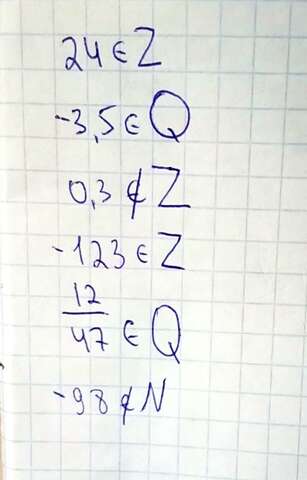 24 ∈ Z
-3,5 ∈ Q
0,3 ∉ Z
-123 ∈ Z
12/47 ∈ Q
-98 ∉ N